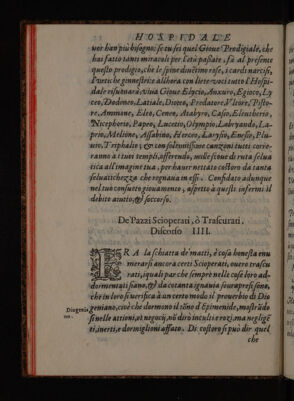 HOSPIDALE
uer han più bisogno; se tu sei quel Gioue Prodigiale, che
has fatto tanti miracoli per l'età passate, fà al presente
questo prodigio, che le spine diuētino rose, i cardi narcisi,
l'ortiche ginnestre: e allhora con liete voci tutto l'Hospi-
dale risuonarà Viua Gioue Elycio, Anxuro, Egioco, Ly-
ceo, Dodoneo, Latiale, Dicteo, Predatore, Vltore, Pisto-
re, Ammione, Eleo, Ceneo, Atabyro, Casio, Eleutherio,
Nicephorio, Papeo, Lucetio, Olympio, Labryando, La-
prio, Molione, Assabino, Herceo, Larysio, Enesio, Plu-
uio, Triphalio; & con solennissime canzoni tutti corre-
ranno a i tuoi tempi, offerendo, mille stoue di ruta selua
tica all'imagine tua, per hauer nettato costoro da tanta
seluatichezza che regnaua in essi. Confidato adunque
nel tuo consueto giouamento, aspetto à questi infermi il
debito aiuto, & soccorso.
De Pazzi Scioperati, ò Trascurati.
Discorso IIII.
FRA la schiatta de'matti, è cosa honesta enu
merarsi ancora certi Scioperati, ouero trascu
rati, i quali par che sempre nelle cose loro ad-
dormentati siano, & da cotanta ignauia souraprẽsi sono,
che in loro si uerifica à un certo modo il prouerbio di Dio
geniano, cioè che dormono il sõno d'Epimenide, mostrãdo
si nelle attioni, et negocij, nõ dirò inculti e rozi, ma negligẽ
ti, inerti, e dormiglioni affatto. Di costoro si può dir quel
che
Diogenia
no.